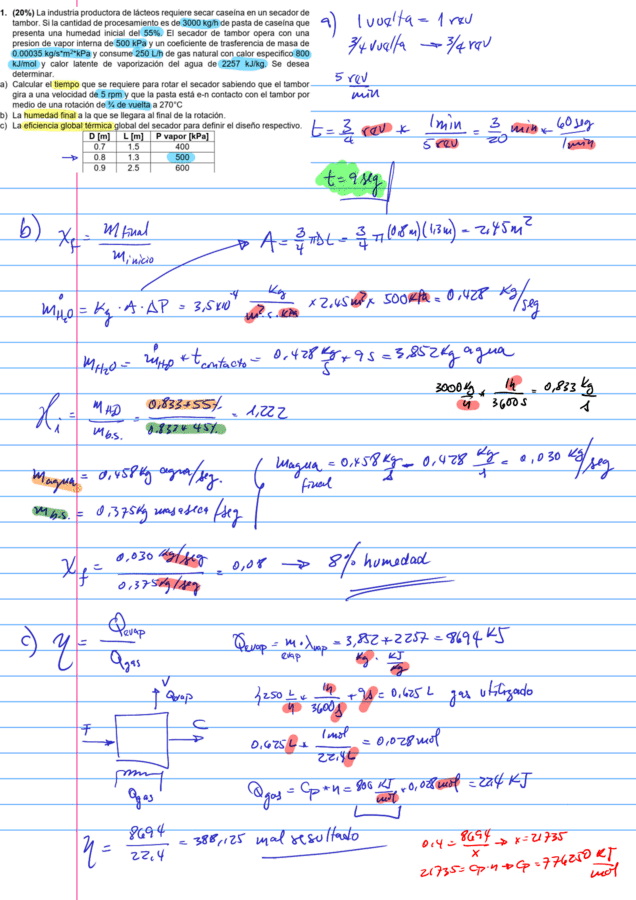 1. (20%) La industria productora de lácteos requiere secar caseína en un secador de
tambor. Si la cantidad de procesamiento es de 3000 kg/h de pasta de caseína que
presenta una humedad inicial del 55%. El secador de tambor opera con una
presion de vapor interna de 500 kPa y un coeficiente de trasferencia de masa de
0.00035 kg/s*m²*kPa y consume 250 L/h de gas natural con calor especifico 800
kJ/mol y calor latente de vaporización del agua de 2257 kJ/kg. Se desea
determinar.
a) Calcular el tiempo que se requiere para rotar el secador sabiendo que el tambor
gira a una velocidad de 5 rpm y que la pasta está e-n contacto con el tambor por
medio de una rotación de ¾ de vuelta a 270°C
b) La humedad final a la que se llegara al final de la rotación.
c) La eficiencia global térmica global del secador para definir el diseño respectivo.
D [m] L [m] P vapor [kPa]
0.7 1.5 400
→ 0.8 1.3 500
0.9 2.5 600
a) 1 vuelta = 1 rev
3/4 vuelta → 3/4 rev
5 rev/min
t = 3/4 rev * 1min/5 rev = 3/20 min * 60 seg/1 min
t = 9 seg
b) x_f = m final/m inicio → A = 3/4 πDL = 3/4 π (0,8m)(1,3m) = 2,45 m²
ṁ H2O = Kg · A · ΔP = 3,5x10⁻⁴ Kg/m².s.kPa x 2,45 m² x 500 kPa = 0,428 Kg/seg
m H2O = ṁ H2O * t contacto = 0,428 Kg/s * 9 s = 3,852 Kg agua
3000 Kg/h * 1h/3600 s = 0,833 Kg/s
X i = m H2O/m b.s. = 0,833*55%/0.833*45% = 1,222
m agua = 0,458 Kg agua/seg.
m agua final = 0,458 Kg/s - 0,428 Kg/s = 0,030 Kg/seg
m b.s. = 0,375 Kg masa seca/seg
X f = 0,030 Kg/seg/0,375 Kg/seg = 0,08 → 8% humedad
c) η = Q evap/Q gas
Q evap = m evap · λ vap = 3,852 * 2257 = 8694 KJ
Kg · KJ/Kg
250 L/h * 1h/3600 s * 9 s = 0,625 L gas utilizado
V
Q vap
F
C
0,625 L * 1mol/22,4 L = 0,028 mol
Q gas
Q gas = Cp * n = 800 KJ/mol * 0,028 mol = 22,4 KJ
η = 8694/22,4 = 388,125 mal resultado
0,4 = 8694/x → x = 21735
21735 = Cp · n → Cp = 776250 KJ/mol